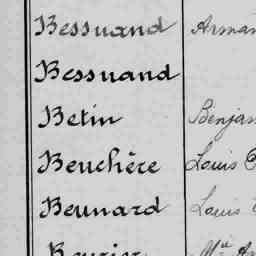 Bessuand Arman
Bessuand
Betin Benjam
Beuchère Louis
Beunard Louis